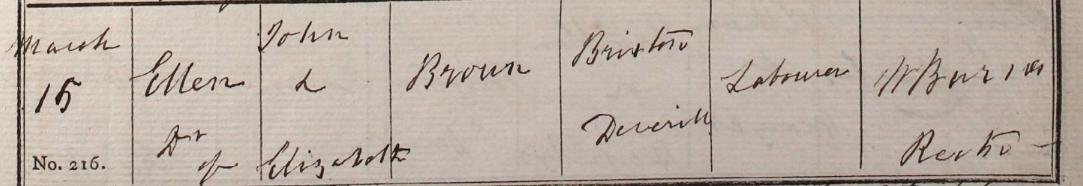 March
15
No. 216.
Ellen
Dr
of
John
&
Elizabeth
Brown
Brixton
Deverill
Labourer
Rector